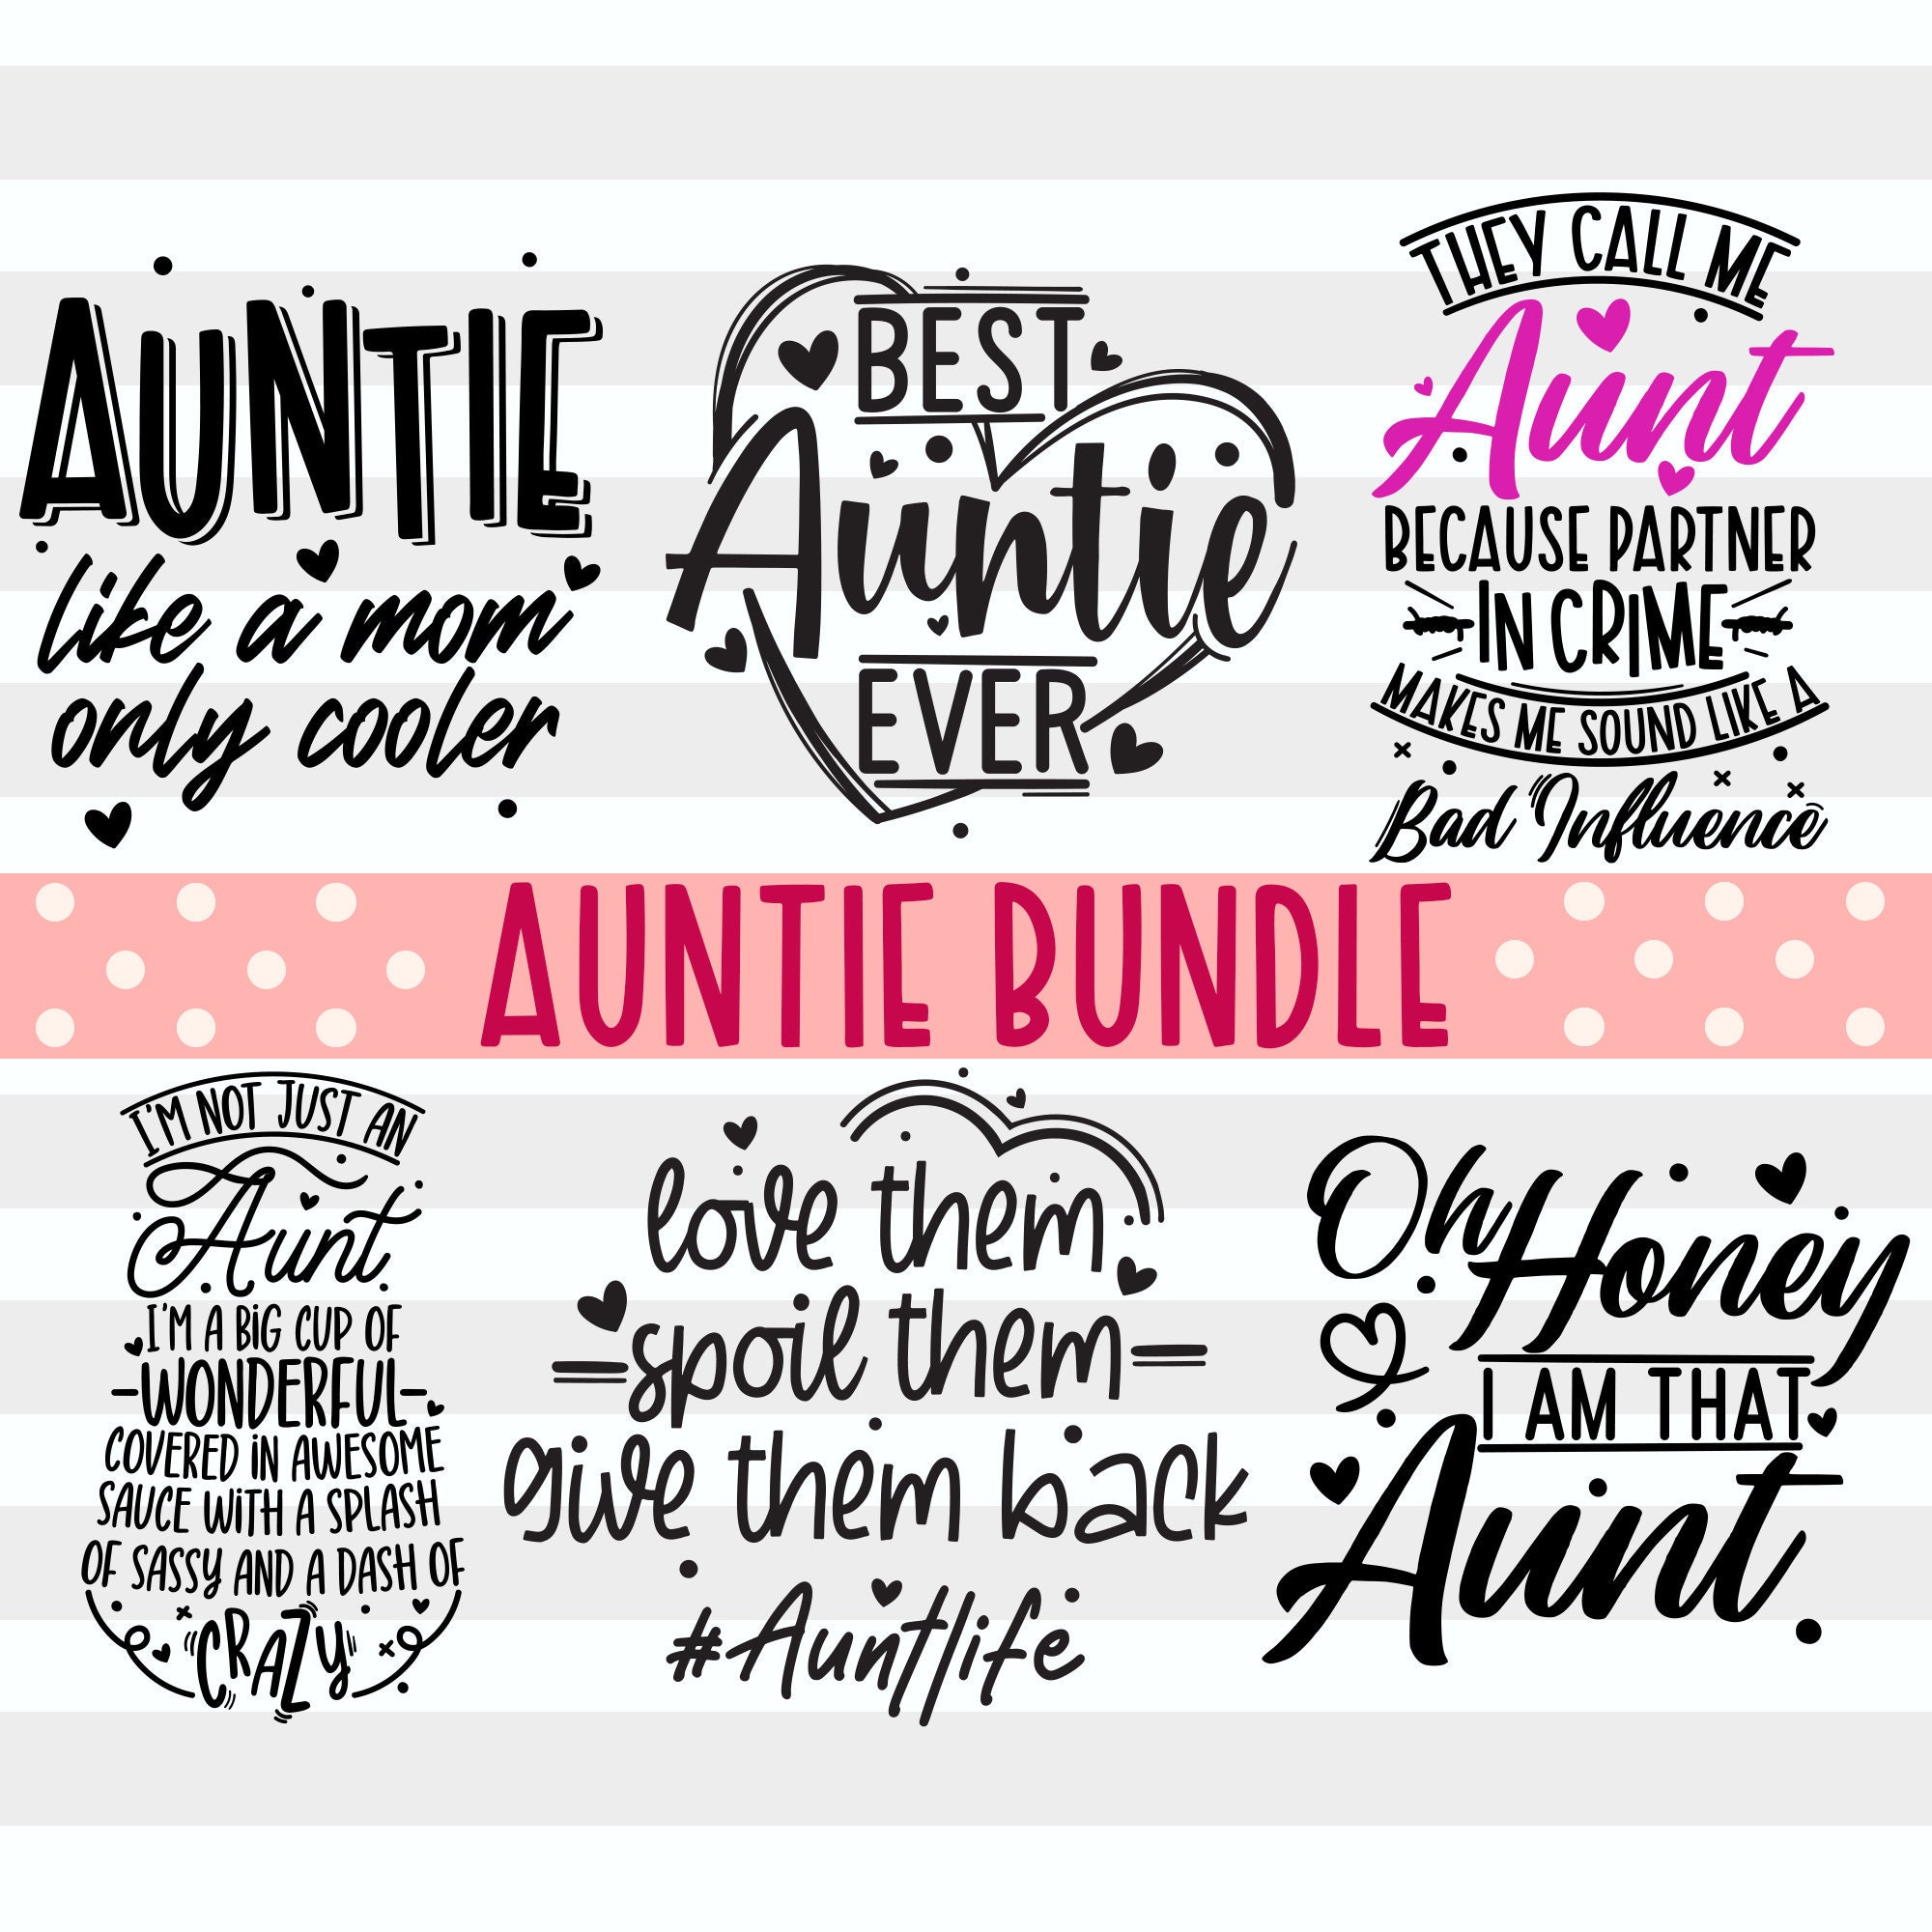 AUNTIE
like a mom
only cooler
BEST
Auntie
EVER
THEY CALL ME
Aunt
BECAUSE PARTNER
IN CRIME
MAKES ME SOUND LIKE A
Bad Influence
AUNTIE BUNDLE
I'M NOT JUST AN
Aunt
I'M A BIG CUP OF
WONDERFUL
COVERED IN AWESOME
SAUCE WITH A SPLASH
OF SASSY AND A DASH OF
CRAZY
love them
spoil them
give them back
#Auntlife
O' Honey
I AM THAT
Aunt